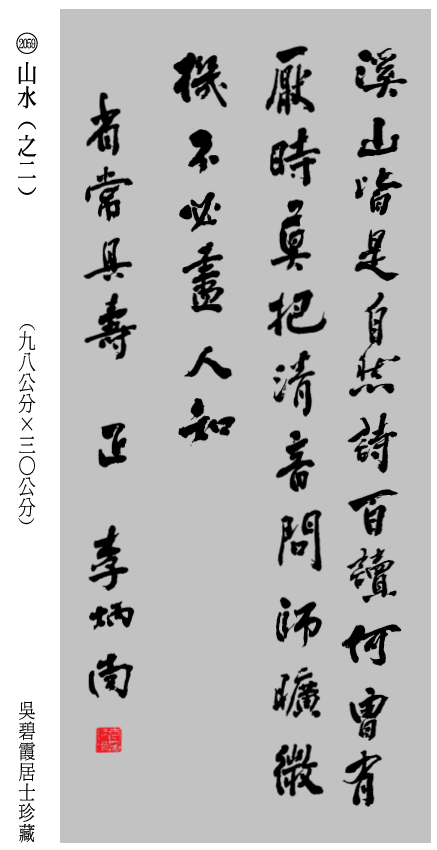 溪山皆是自然詩百讀何曾有
厭時莫把清音問師曠微
機不必盡人知
省常具壽 正 李炳南
2059 山水(之二) (九八公分×三〇公分) 吳碧霞居士珍藏